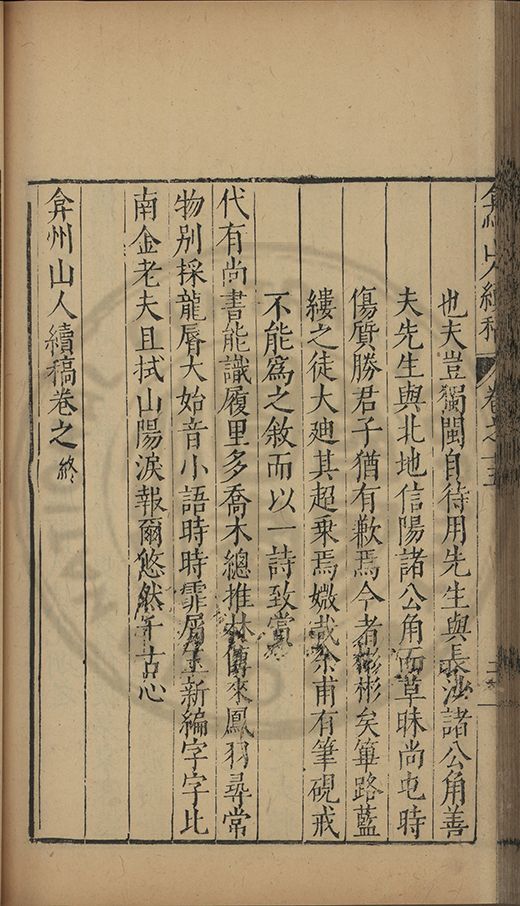 弇州山人續稿 卷之十五
也夫豈獨閩自待用先生與長沙諸公角善
夫先生與北地信陽諸公角而草昧尚屯時
傷質勝君子猶有歉焉今者彬彬矣篳路藍
縷之徒大廸其超乗焉媺哉余甫有筆硯戒
不能爲之敘而以一詩致賞
代有尚書能識履里多喬木總推林傳來鳳羽尋常
物别採龍唇大始音小語時時霏屑玉新編字字比
南金老夫且拭山陽淚報爾悠然千古心
弇州山人續稿卷之 終